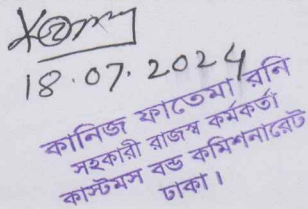 18.07.2024
কানিজ ফাতেমা রনি
সহকারী রাজস্ব কর্মকর্তা
কাস্টমস বন্ড কমিশনারেট
ঢাকা।